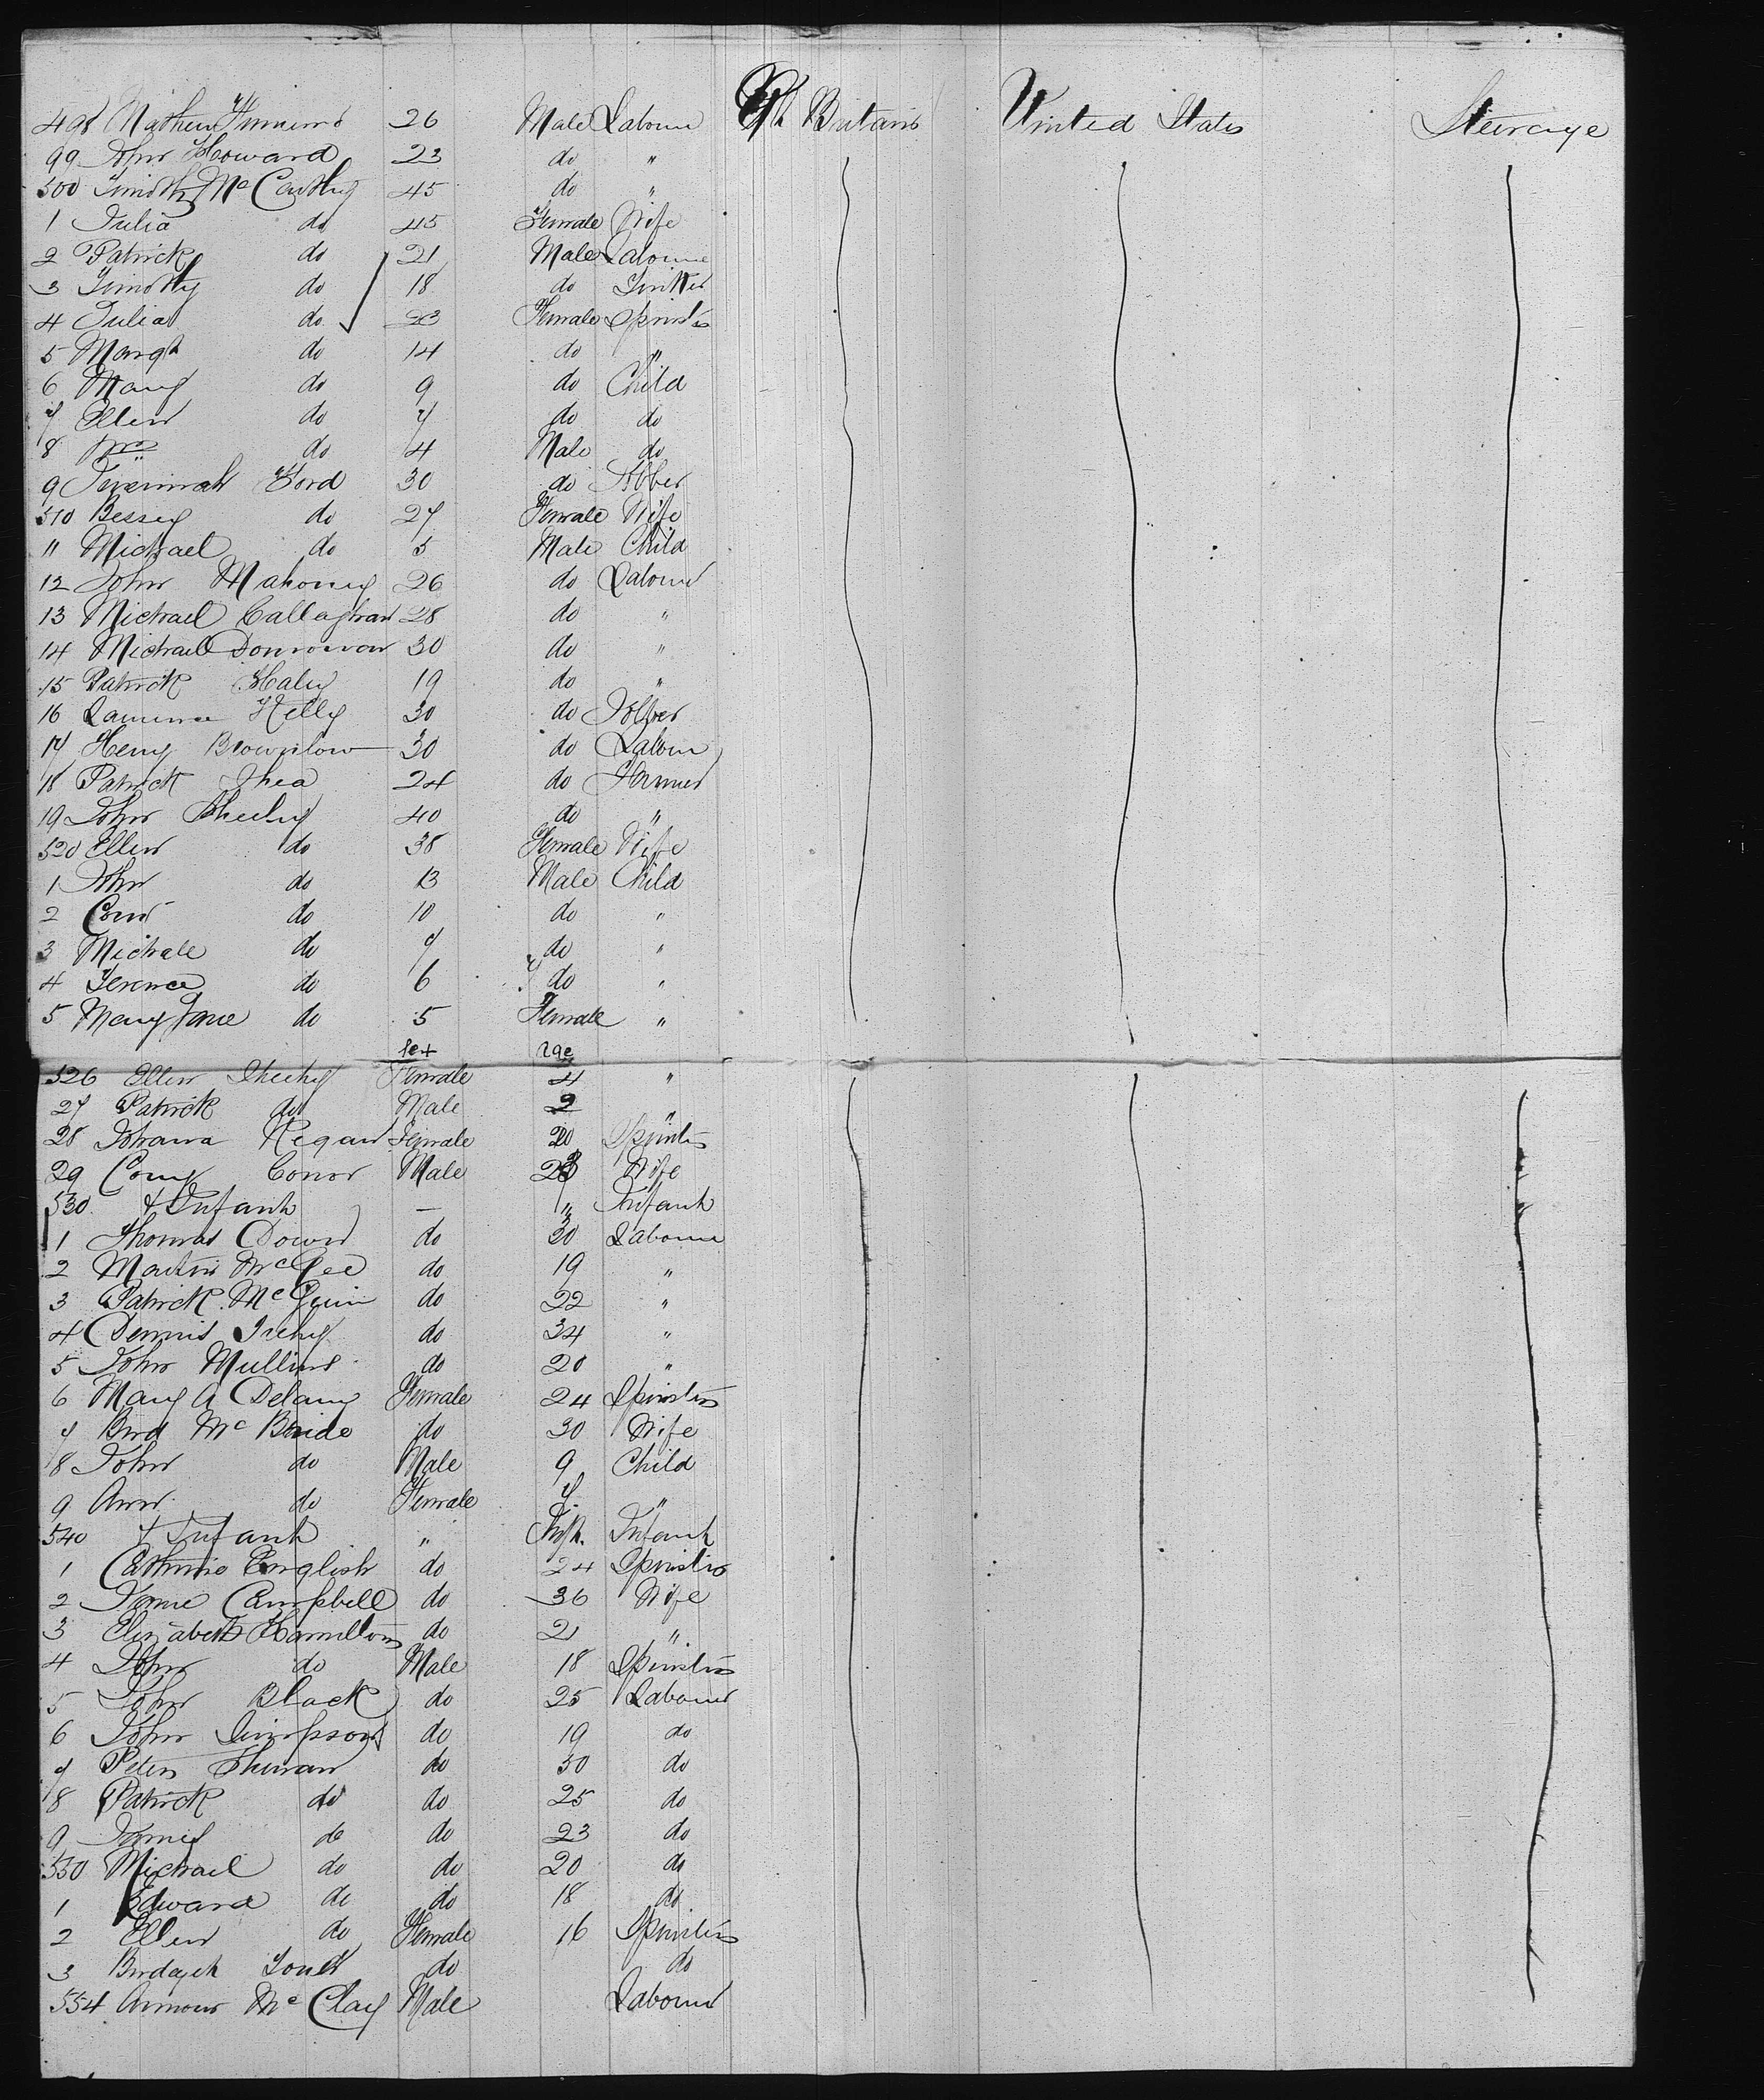 498 Mathew 26 Male Labourer Gt. Britain United States Steerage
99 John Howard 23 do "
500 Timothy Mc Carthy 45 do "
1 Julia do 45 Female Wife
2 Patrick do 21 Male Labourer
3 Timothy do 18 do
4 Julia do 23 Female Spinster
5 Margt do 14 do "
6 Mary do 9 do Child
7 Ellen do 7 do do
8 Wm do 4 Male do
9 Jeremiah Ford 30 do Jobber
510 Bessey do 27 Female Wife
11 Michael do 5 Male Child
12 John Mahoney 26 do Labourer
13 Michael Callaghan 28 do "
14 Michael Donnovan 30 do "
15 Patrick Haley 19 do "
16 Laurence Kelly 30 do Jobber
17 Henry Brownlow 30 do Labour
18 Patrick Shea 24 do Farmer
19 John Sheehy 40 do "
520 Ellen do 38 Female Wife
1 John do 13 Male Child
2 Corns do 10 do "
3 Michale do 7 do "
4 Terence do 6 do "
5 Mary Jane do 5 Female "
Sex Age
526 Ellen Sheehy Female 4 "
27 Patrick do Male 2 "
28 Johanna Regan Female 20 Spinster
29 Conor Male Wife
530 & Infant — " Infant
1 Thomas Down do 30 Labourer
2 Martin McGee do 19 "
3 Patrick Mc Guin do 22 "
4 Dennis do 34 "
5 John Mullins do 20 "
6 Mary A Delany Female 24 Spinster
7 Brd Mc Bride do 30 Wife
8 John do Male 9 Child
9 Ann do Female 7 "
540 & Infant " Inft. Infant
1 Catherine English do 24 Spinster
2 Jane Campbell do 36 Wife
3 Elizabeth Hamilton do 21 "
4 John do Male 18 Spinster
5 John Black do 25 Labourer
6 John Simpson do 19 do
7 Peter do 30 do
8 Patrick do do 25 do
9 James do do 23 do
550 Michael do do 20 do
1 Edward do do 18 do
2 Ellen do Female 16 Spinster
3 do do
554 Mc Clay Male Labourer